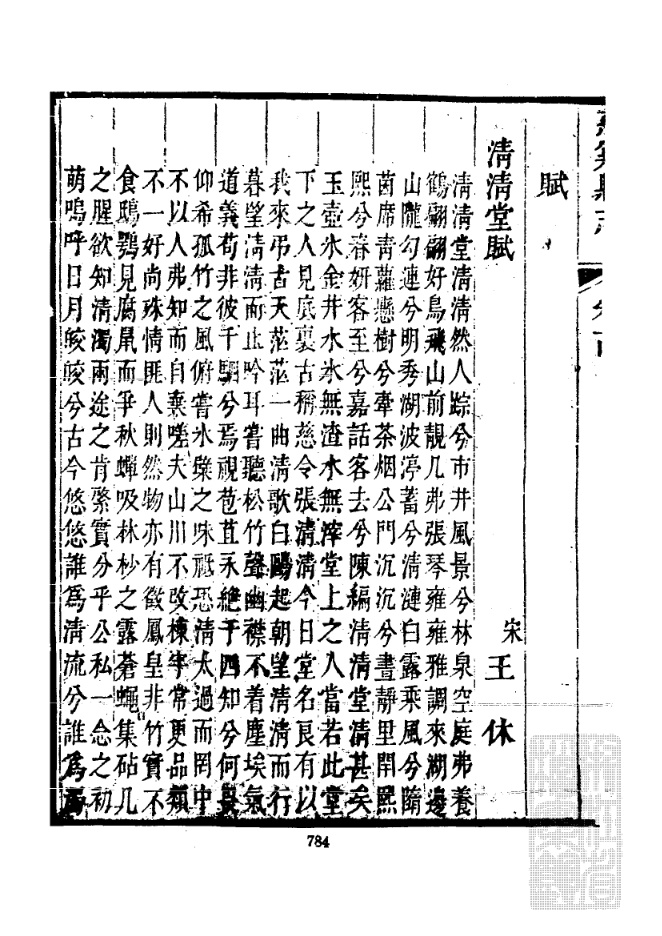 賦
清清堂賦
宋王休
清清堂清清然人踪兮市井風景兮林泉空庭弗養
鶴翩翩好鳥飛山前靚几弗張琴雍雍雅調來湖邊
山隴勾連兮明秀湖波渟蓄兮清漣白露乘風兮隋
茵席青蘿懸樹兮牽茶烟公門沉沉兮晝靜里閈熙
熙兮春妍客至兮嘉話客去兮陳編清清堂清甚矣
玉壺氷金井水氷無渣水無滓堂上之人當若此堂
下之人見底裏古稱慈令張清清今日堂名良有以
我來弔古天茫茫一曲清歌白鷗起朝望清清而行
暮望清清而止吟耳嘗聽松竹聲幽襟不着塵埃氣
道義苟非彼千駟兮焉視苞苴永絶于四知兮何
仰希孤竹之風俯嘗氷檗之味祗恐清太過而罔中
不以人弗知而自棄嗟夫山川不改棟宇常更品類
不一好尚殊情匪人則然物亦有徵鳳皇非竹實不
食鴟鶚見腐鼠而爭秋蟬吸林杪之露蒼蠅集砧几
之腥欲知清濁兩途之肯綮實分乎公私一念之初
萌嗚呼日月皎皎兮古今悠悠誰為清流兮誰為濁
784